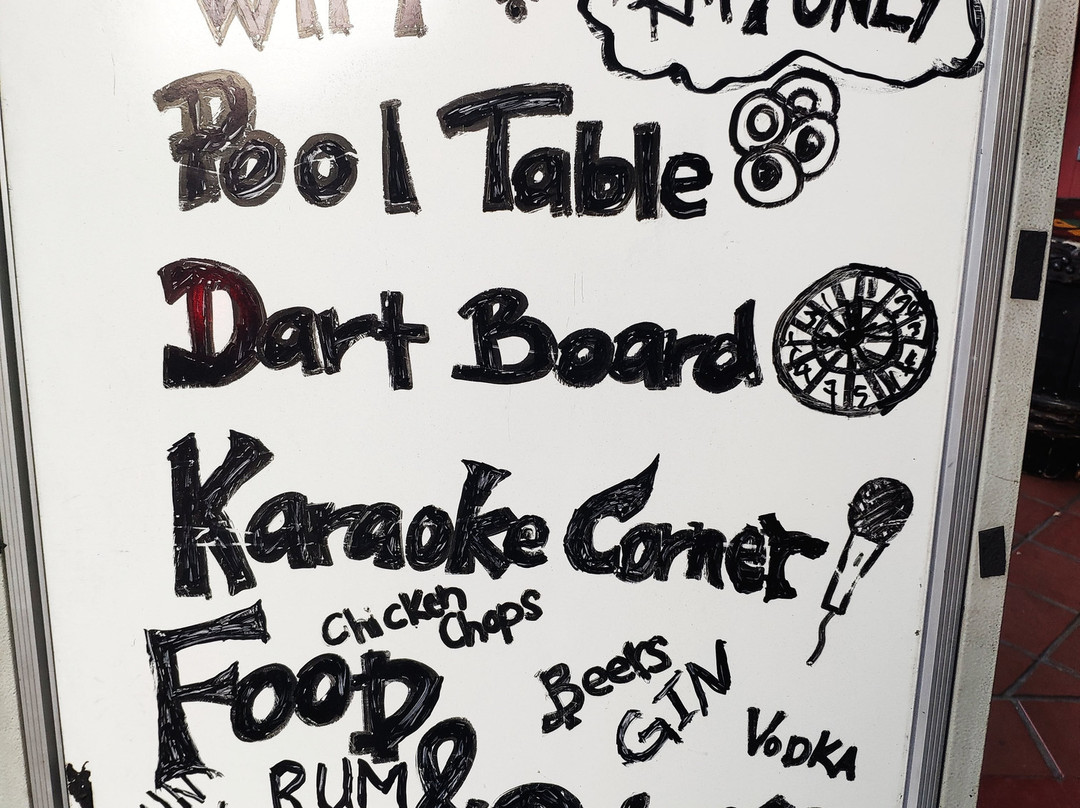 Pool Table
Dart Board
Karaoke Corner
Chicken
Chops
FOOD
Beers
GIN
VODKA
RUM &